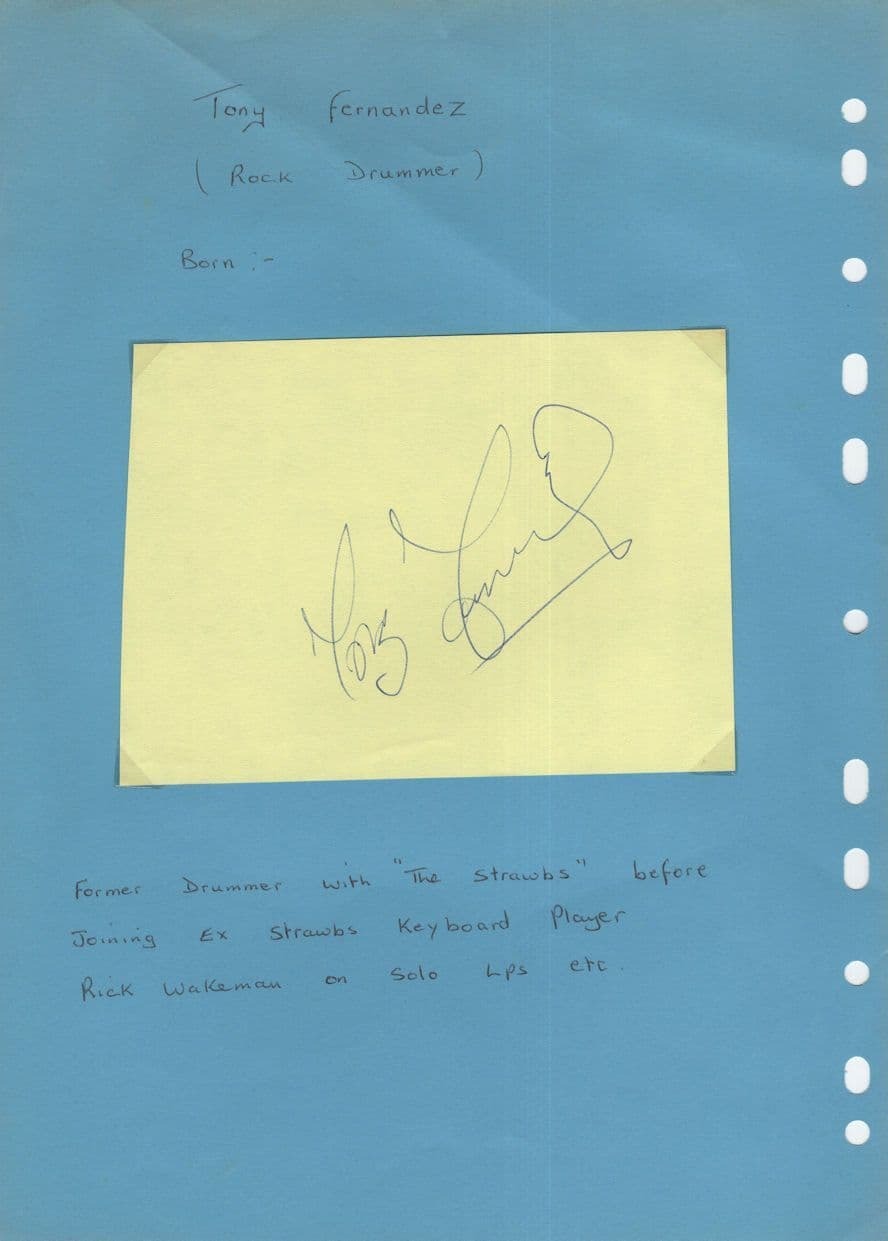 Tony Fernandez
(Rock Drummer)
Born :-
Tony Fernandez
Former Drummer with "The Strawbs" before
Joining Ex Strawbs Keyboard Player
Rick Wakeman on Solo Lps etc.